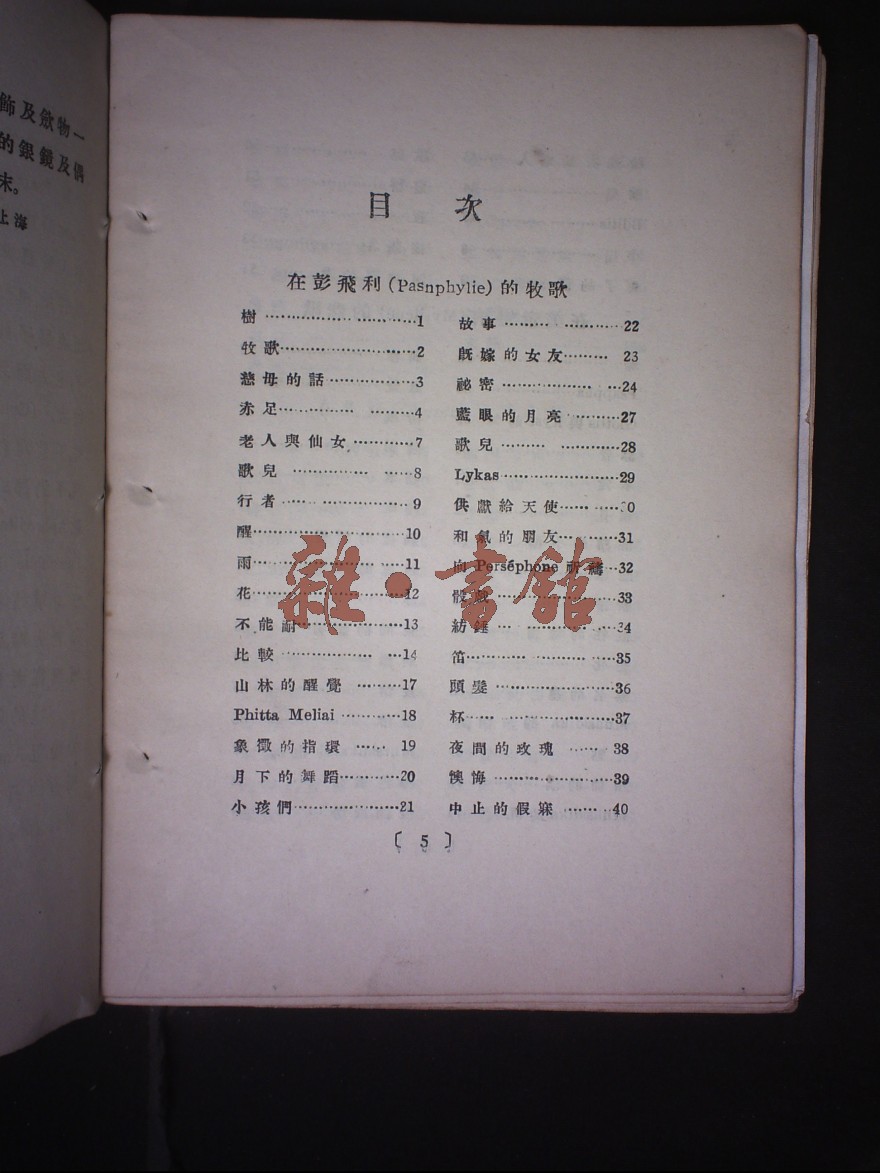 飾及斂物一
的銀鏡及偶
末。
上海
目 次
在彭飛利(Pasnphylie)的牧歌
樹………………………1
牧歌……………………2
慈母的話………………3
赤足……………………4
老人與仙女……………7
歌兒……………………8
行者……………………9
醒………………………10
雨………………………11
花………………………12
不能耐…………………13
比較……………………14
山林的醒覺……………17
Phitta Meliai…………18
象徵的指環……………19
月下的舞蹈……………20
小孩們…………………21
故事……………………22
既嫁的女友……………23
祕密……………………24
藍眼的月亮……………27
歌兒……………………28
Lykas…………………29
供獻給天使……………30
和氣的朋友……………31
向Perséphone祈禱…32
骰戲……………………33
紡錘……………………34
笛………………………35
頭髮……………………36
杯………………………37
夜間的玫瑰……………38
懊悔……………………39
中止的假寐……………40
〔 5 〕
雜·書館